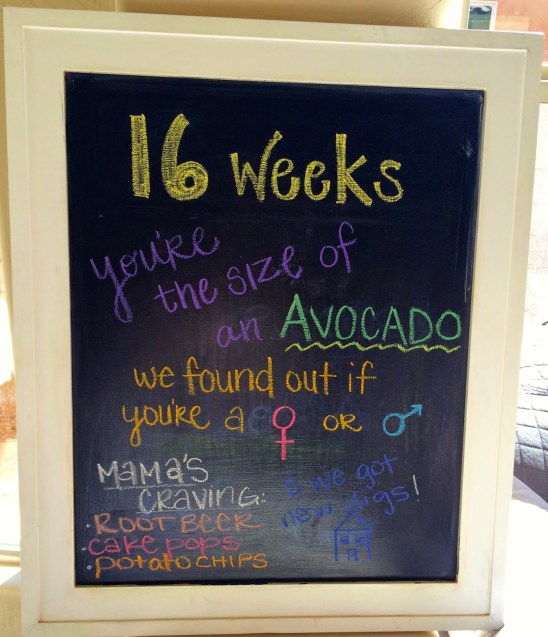 16 weeks
you're
the size of
an AVOCADO
we found out if
you're a ♀ OR ♂
MAMA'S
CRAVING:
· ROOT BEER
· cake pops
· potato CHIPS
& we got
new digs!